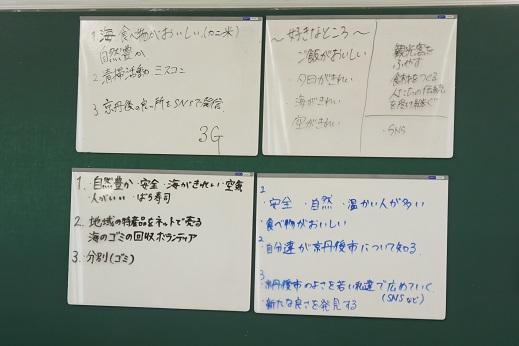 1. 海 食べ物がおいしい(カニ 米)
自然豊か
2 清掃活動 ミスコン
3. 京丹後の良い所をSNSで発信
3G
〜好きなところ〜
ご飯がおいしい
・夕日がきれい
・海がきれい
・空がきれい
観光客を
ふやす
食材をつくる
人たちの伝統
を受け継ぐ
・SNS
1. 自然豊か ・安全 ・海がきれい・空気
人がいい ・ばら寿司
2. 地域の特産品をネットで売る
海のゴミの回収ボランティア
3. 分別(ゴミ)
・安全 ・自然 ・温かい人が多い
・食べ物がおいしい
2
・自分達が京丹後市について知る
3
・京丹後市のよさを若い私達で広めていく
(SNSなど)
・新たな良さを発見する